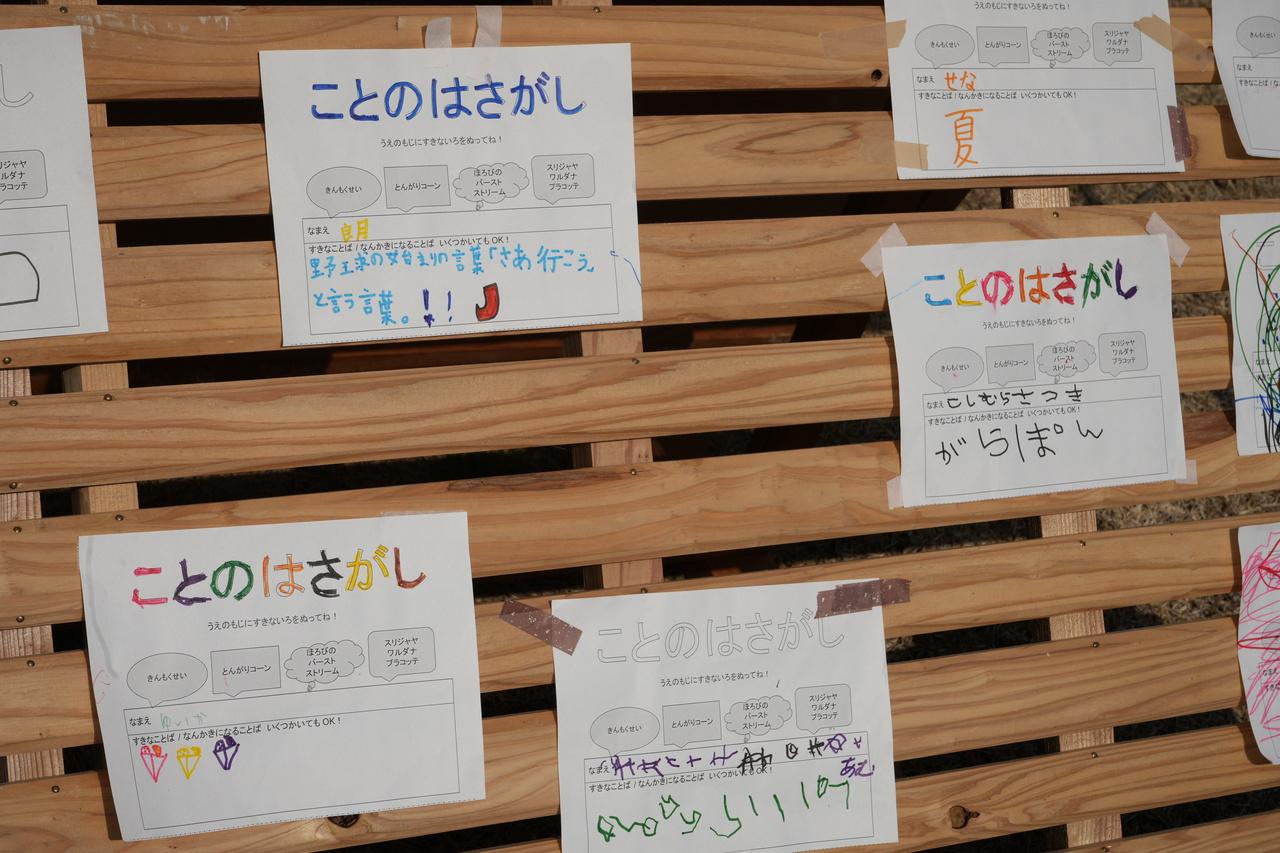 ことのはさがし
うえのもじにすきないろをぬってね！
きんもくせい
とんがりコーン
ほろびの
バースト
ストリーム
スリジャヤ
ワルダナ
プラコッテ
なまえ
すきなことば / なんかきになることば いくつかいてもOK！
野球の始まりの言葉「さあ行こう」
と言う言葉。!!
うえのもじにすきないろをぬってね！
きんもくせい
とんがりコーン
ほろびの
バースト
ストリーム
スリジャヤ
ワルダナ
プラコッテ
なまえ せな
すきなことば / なんかきになることば いくつかいてもOK！
夏
ことのはさがし
うえのもじにすきないろをぬってね！
きんもくせい
とんがりコーン
ほろびの
バースト
ストリーム
スリジャヤ
ワルダナ
プラコッテ
なまえ こしむらさつき
すきなことば / なんかきになることば いくつかいてもOK！
がらぽん
ことのはさがし
うえのもじにすきないろをぬってね！
きんもくせい
とんがりコーン
ほろびの
バースト
ストリーム
スリジャヤ
ワルダナ
プラコッテ
なまえ ゆいか
すきなことば / なんかきになることば いくつかいてもOK！
ことのはさがし
うえのもじにすきないろをぬってね！
きんもくせい
とんがりコーン
ほろびの
バースト
ストリーム
スリジャヤ
ワルダナ
プラコッテ
なまえ
すきなことば / なんかきになることば いくつかいてもOK！